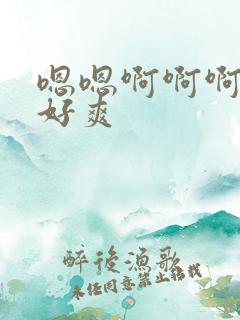 嗯嗯啊啊啊
好爽
醉後漁歌
未经同意禁止转载